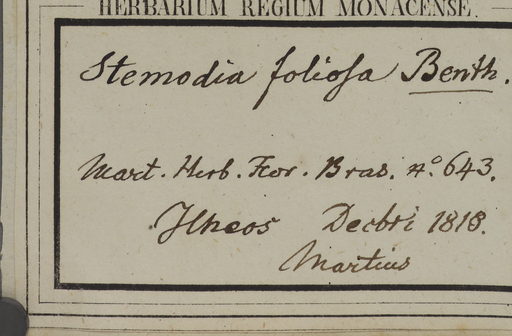 HERBARIUM REGIUM MONACENSE.
Stemodia foliosa Benth.
Mart. Herb. Flor. Bras. n.º 643.
Ilheos Decbri 1818.
Martius